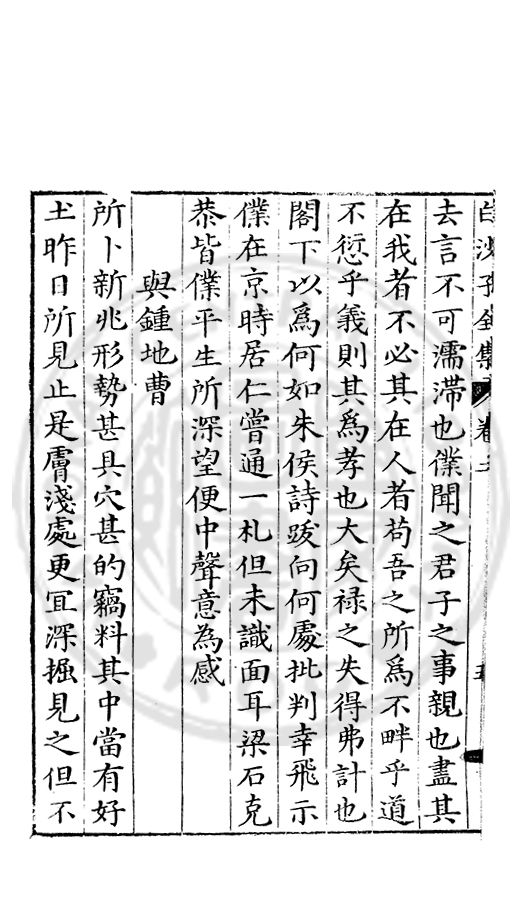 白沙子全集 卷之
去言不可濡滯也僕聞之君子之事親也盡其
在我者不必其在人者苟吾之所為不畔乎道
不愆乎義則其為孝也大矣祿之失得弗計也
閣下以為何如朱侯詩跋向何處批判幸飛示
僕在京時居仁嘗通一札但未識面耳梁石克
恭皆僕平生所深望便中聲意為感
與鍾地曹
所卜新兆形勢甚具穴甚的竊料其中當有好
土昨日所見止是膚淺處更宜深掘見之但不